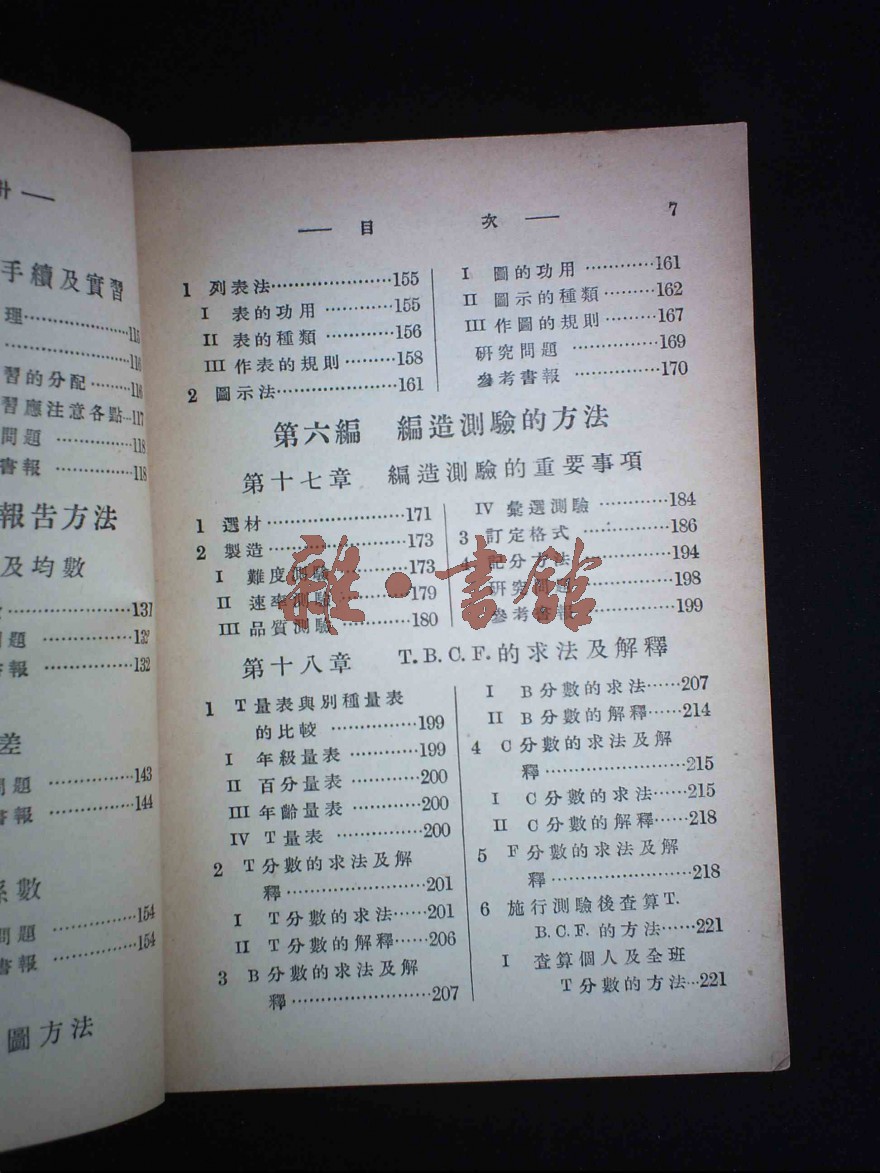 升 —
手續及實習
理…………………115
…………………116
習的分配………116
習應注意各點…117
問題 …………118
書報 …………118
報告方法
及均數
…………………137
問題 …………132
書報 …………132
差
問題 …………143
書報 …………144
係數
問題 …………154
書報 …………154
圖方法
— 目 次 — 7
1 列表法…………………155
I 表的功用 ……………155
II 表的種類 ……………156
III 作表的規則 ………158
2 圖示法…………………161
I 圖的功用 …………161
II 圖示的種類………162
III 作圖的規則………167
研究問題 …………169
參考書報 …………170
第六編 編造測驗的方法
第十七章 編造測驗的重要事項
1 選材…………………171
2 製造…………………173
I 難度測驗…………173
II 速率測驗…………179
III 品質測驗…………180
IV 彙選測驗 …………184
3 訂定格式 ……………186
4 記分方法……………194
研究問題……………198
參考書報……………199
雜·書館
第十八章 T.B.C.F.的求法及解釋
1 T量表與別種量表
的比較 …………199
I 年級量表 …………199
II 百分量表…………200
III 年齡量表…………200
IV T量表 ……………200
2 T分數的求法及解
釋……………………201
I T分數的求法……201
II T分數的解釋……206
3 B分數的求法及解
釋……………………207
I B分數的求法……207
II B分數的解釋……214
4 C分數的求法及解
釋……………………215
I C分數的求法……215
II C分數的解釋……218
5 F分數的求法及解
釋……………………218
6 施行測驗後查算T.
B.C.F.的方法……221
I 查算個人及全班
T分數的方法…221